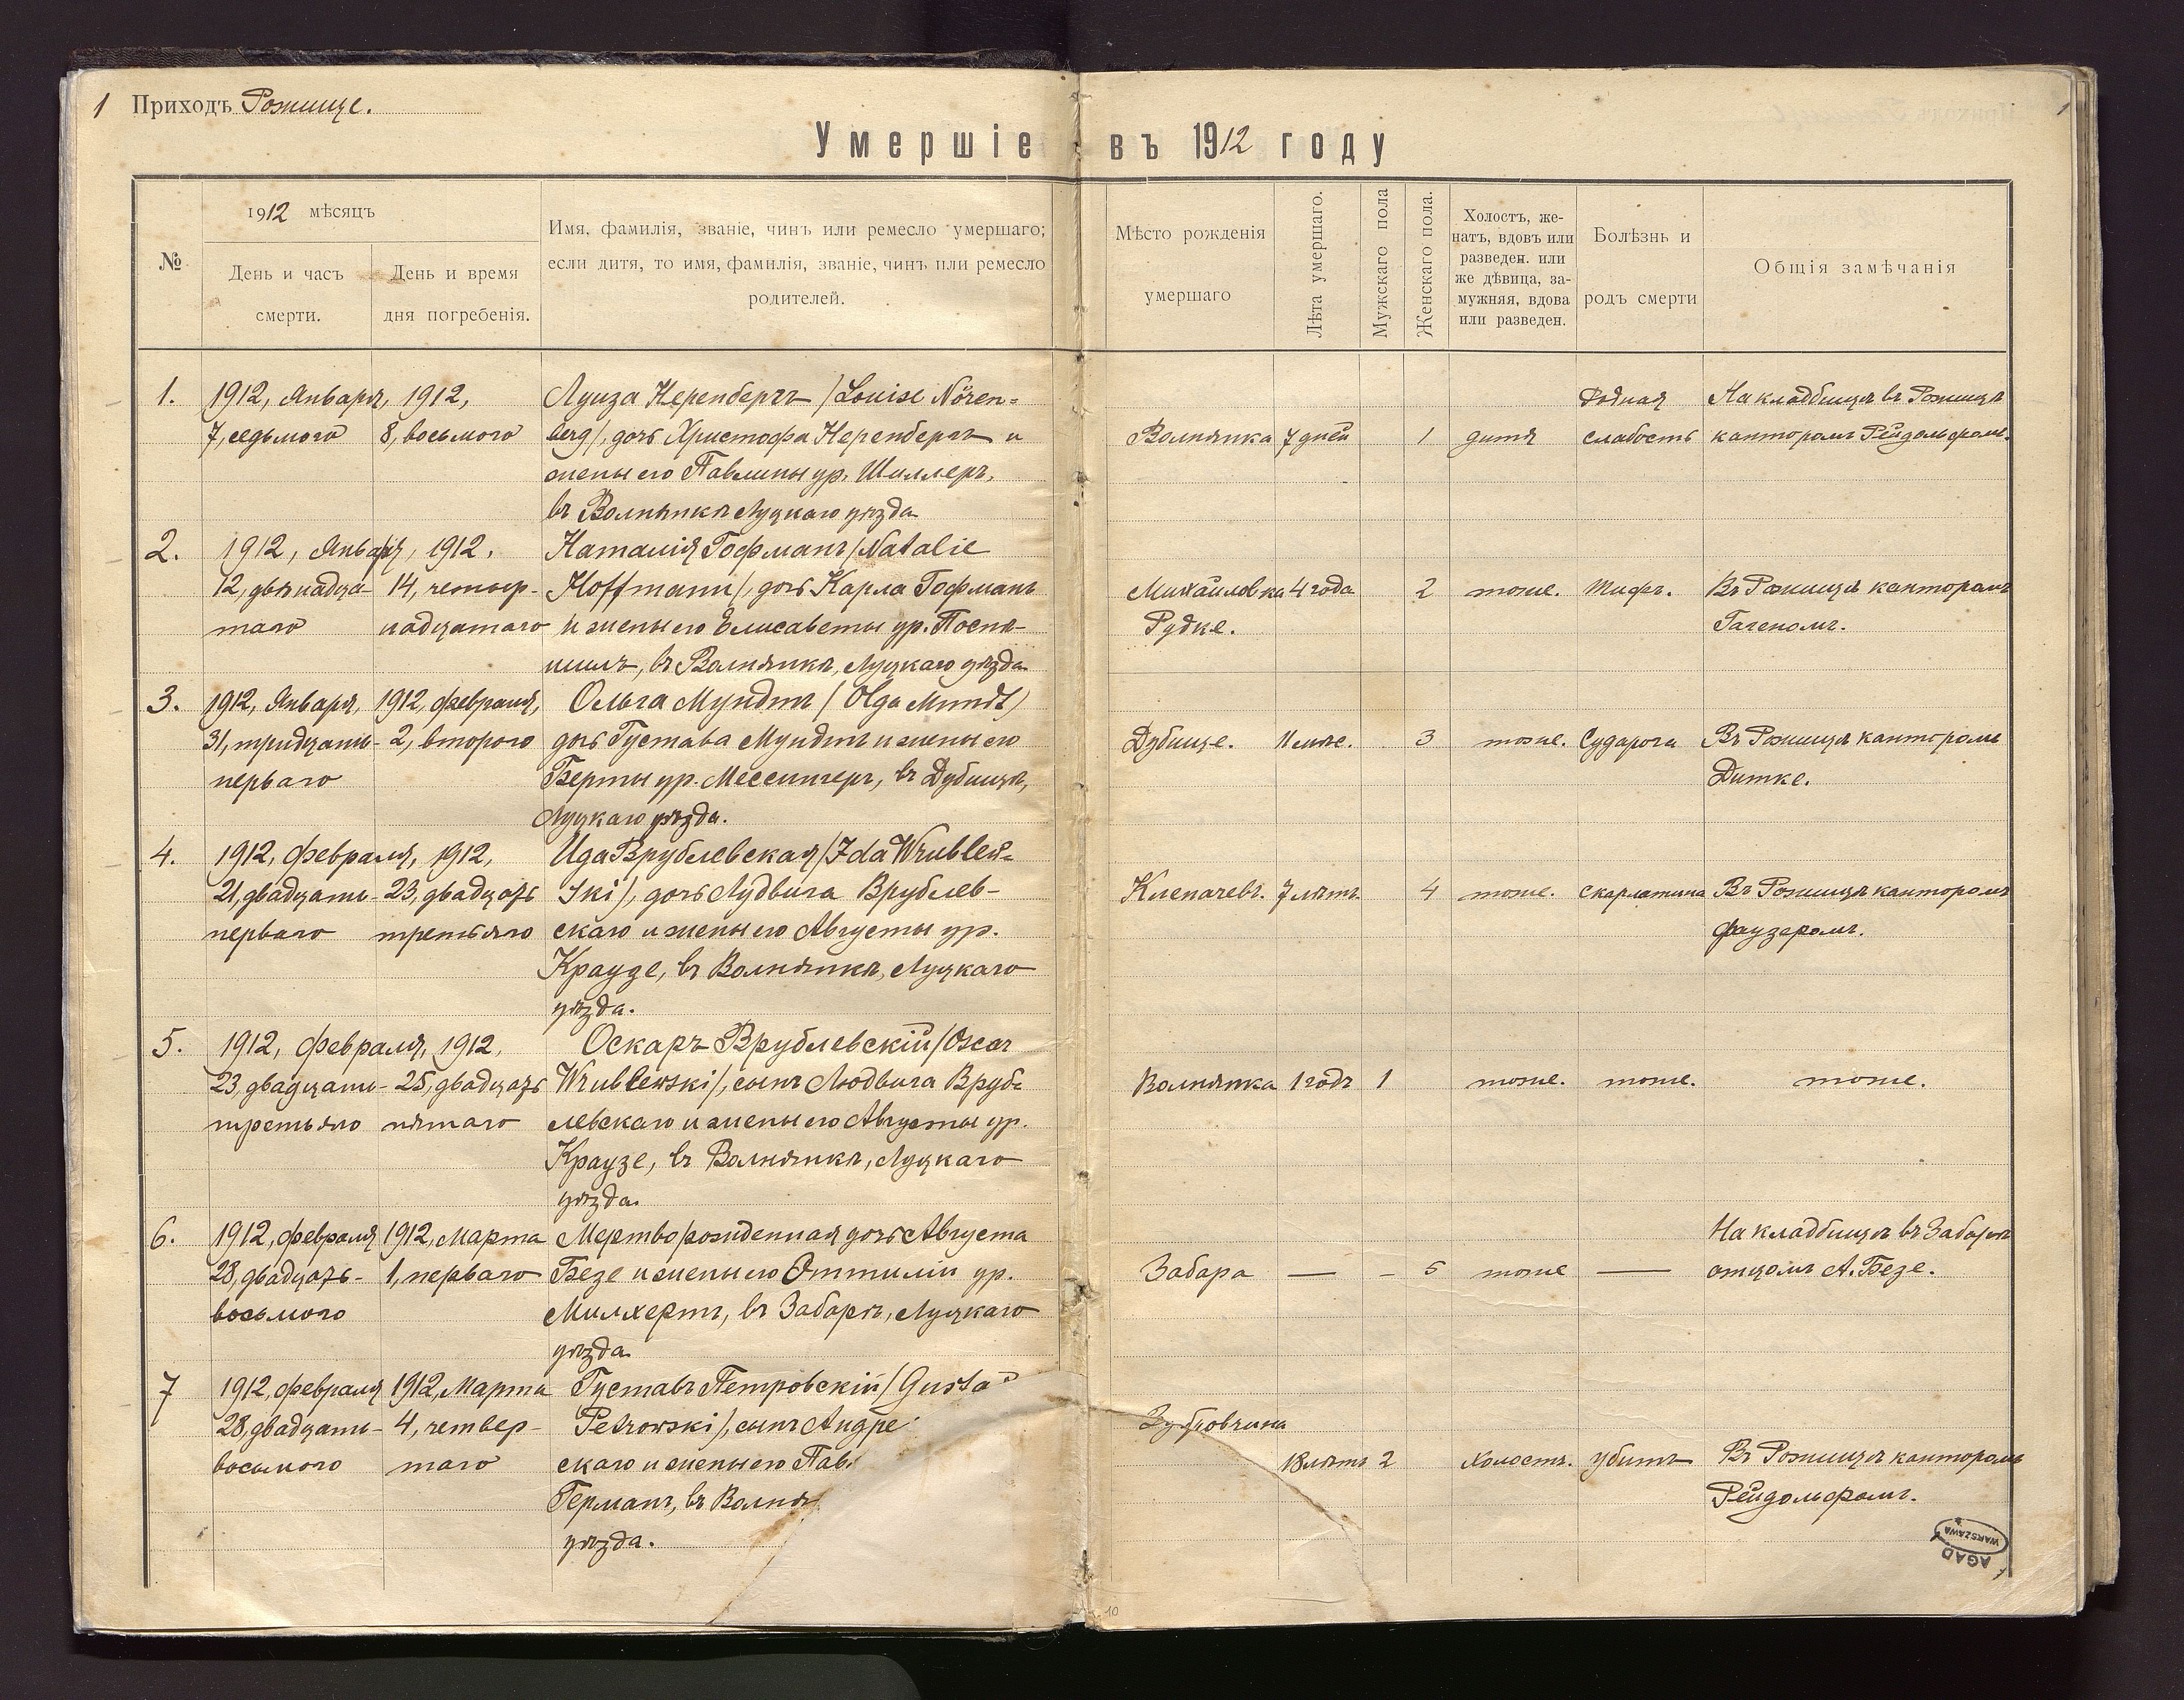 1 Приходъ Рожище.
1
Умершіе въ 1912 году
№
1912 мѣсяцъ
День и часъ
смерти.
День и время
дня погребенія.
Имя, фамилія, званіе, чинъ или ремесло умершаго;
если дитя, то имя, фамилія, званіе, чинъ или ремесло
родителей.
Мѣсто рожденія
умершаго
Лѣта умершаго.
Мужскаго пола
Женскаго пола.
Холостъ, же-
натъ, вдовъ или
разведен. или
же дѣвица, за-
мужняя, вдова
или разведен.
Болѣзнь и
родъ смерти
Общія замѣчанія
1. 1912, Января, 1912, Луиза Неренбергъ /Louise Nören= Родная На кладбищѣ въ Рожищѣ
7, седьмого 8, восьмого berg/, дочь Христофа Неренбергъ и Волнянка 7 дней 1 дитя слабость канторомъ Рейдольфомъ.
жены его Павлины ур. Шиллеръ,
въ Волнянкѣ Луцкаго уѣзда
2. 1912, Января, 1912, Наталія Гофманъ /Natalie
12, двѣнадца- 14, четыр- Hoffmann/, дочь Карла Гофманъ Михайловка 4 года 2 тоже. Тифъ. Въ Рожищѣ канторомъ
таго надцатаго и жены его Елисаветы ур. Рудке. Гагеномъ.
въ Волнянкѣ, Луцкаго уѣзда
3. 1912, Января, 1912, февраля, Ольга Мундтъ (Olga Mundt)
31, тридцать- 2, второго дочь Густава Мундтъ и жены его Дубище. 11 мѣс. 3 тоже. Судорога Въ Рожищѣ канторомъ
перваго Берты ур. Мессингеръ, въ Дубищѣ, Дитке.
Луцкаго уѣзда.
4. 1912, февраля, 1912, Ида Врублевская /Ida Wrublew=
21, двадцать- 23, двадцать ski/, дочь Лудвига Врублев- Клепачевъ. 7 лѣтъ. 4 тоже. скарлатина Въ Рожищѣ канторомъ
перваго третьяго скаго и жены его Августы ур. Фаузеромъ.
Краузе, въ Волнянкѣ, Луцкаго
уѣзда.
5. 1912, февраля, 1912, Оскаръ Врублевскій /Oscar
23, двадцать- 25, двадцать Wrublewski/, сынъ Людвига Вруб- Волнянка 1 годъ 1 тоже. тоже. тоже.
третьяго пятаго левскаго и жены его Августы ур.
Краузе, въ Волнянкѣ, Луцкаго
уѣзда.
6. 1912, февраля 1912, Марта Мертворожденная дочь Августа На кладбищѣ въ Забарѣ
28, двадцать- 1, перваго Безе и жены его Оттиліи ур. Забара — – 5 тоже — отцомъ А. Безе.
восьмого Милхертъ, въ Забарѣ, Луцкаго
уѣзда
7 1912, февраля 1912, Марта Густавъ Петровскій /Gusta
28, двадцать- 4, четвер- Petrowski/, сынъ Андре Зубровчина
восьмого таго скаго и жены его Пав 18 лѣтъ 2 холостъ. убитъ Въ Рожищѣ канторомъ
Германъ, въ Волня Рейдольфомъ.
уѣзда.
AGAD
WARSZAWA
10